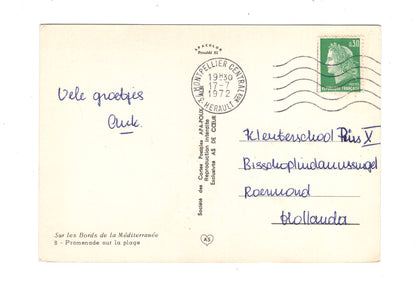 APACOLOR
MONTPELLIER CENTRALISATEUR
19H30
17-7
1972
HERAULT
0,30
REPUBLIQUE FRANÇAISE
Vele groetjes
Ank.
Kleuterschool Pius X
Bisschoplindanussingel
Roermond
Hollande
Société des Cartes Postales APA-POUX
Reproduction interdite
Exclusivité AS DE CŒUR
AS
Sur les Bords de la Méditerranée
8 - Promenade sur la plage